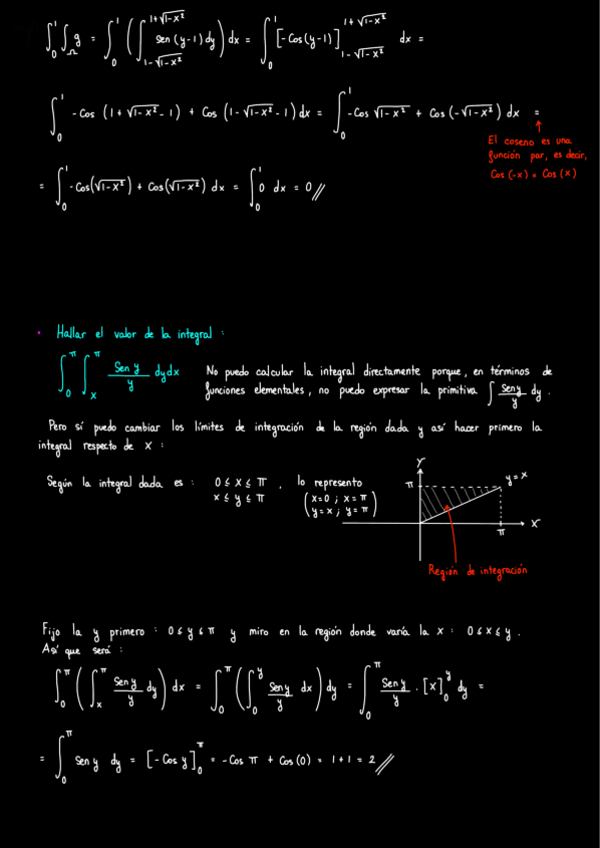 ∫₀¹ ∫_Ω g = ∫₀¹ ( ∫_{1-√(1-x²)}^{1+√(1-x²)} sen (y-1) dy ) dx = ∫₀¹ [-Cos(y-1)]_{1-√(1-x²)}^{1+√(1-x²)} dx =
∫₀¹ -Cos (1+√(1-x²)-1) + Cos (1-√(1-x²)-1) dx = ∫₀¹ -Cos √(1-x²) + Cos (-√(1-x²)) dx =
El coseno es una
función par, es decir,
Cos (-x) = Cos (x)
= ∫₀¹ -Cos(√(1-x²)) + Cos(√(1-x²)) dx = ∫₀¹ 0 dx = 0 //
· Hallar el valor de la integral :
∫₀^π ∫ₓ^π (Sen y)/y dy dx
No puedo calcular la integral directamente porque, en términos de
funciones elementales, no puedo expresar la primitiva ∫ (Sen y)/y dy .
Pero sí puedo cambiar los límites de integración de la región dada y así hacer primero la
integral respecto de x :
Según la integral dada es : 0 ≤ x ≤ π , lo represento
x ≤ y ≤ π
( x=0 ; x=π
y=x ; y=π )
Y
π
y=x
x
π
Región de integración
Fijo la y primero : 0 ≤ y ≤ π y miro en la región donde varía la x : 0 ≤ x ≤ y .
Así que será :
∫₀^π ( ∫ₓ^π (Sen y)/y dy ) dx = ∫₀^π ( ∫₀^y (Sen y)/y dx ) dy = ∫₀^π (Sen y)/y · [x]₀^y dy =
= ∫₀^π Sen y dy = [-Cos y]₀^π = -Cos π + Cos (0) = 1+1 = 2 //